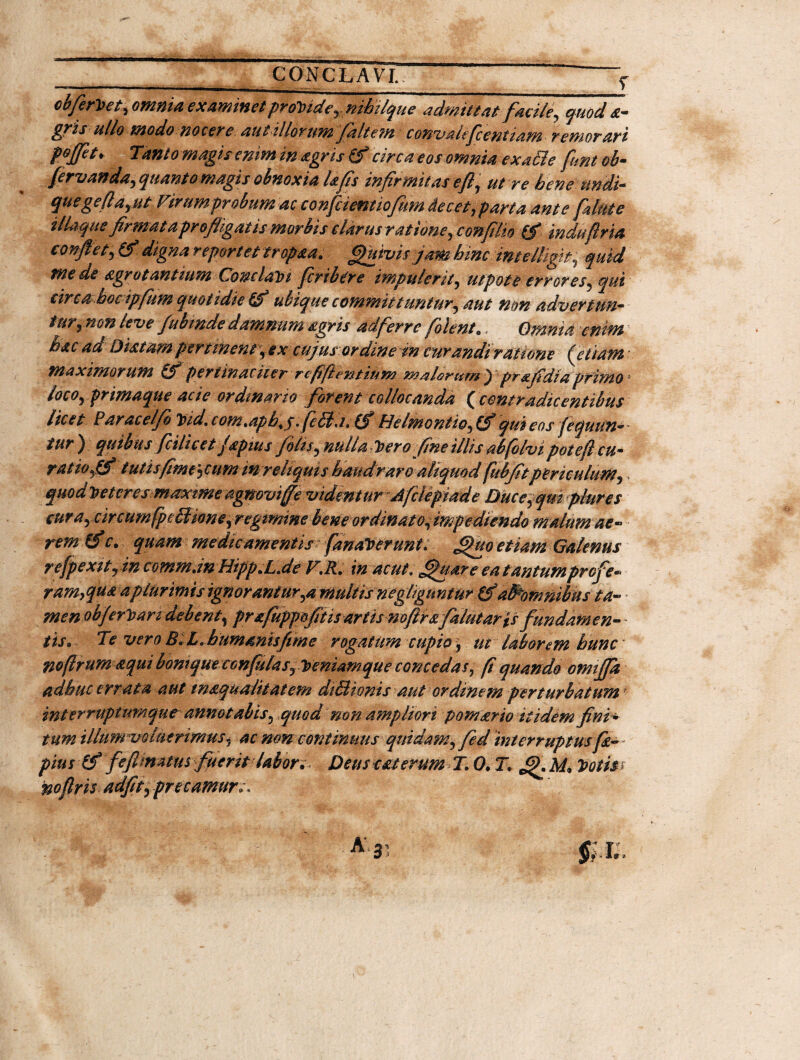 CONCLAVI. 5
observet, omnia examinet provide, nihilque admittat facile, quod æ-
gris ullo modo nocere aut illorum saltem convalescentiam remorari
posset. Tanto magis enim in ægris & circa eos omnia exacte sunt ob-
servanda, quanto magis obnoxia læsis infirmitas est, ut re bene undi-
que gesta, ut Virum probum ac conscientiosum decet, parta ante salute
illaque firmata profligatis morbis clarus ratione, consilio & industria
constet, & digna reportet tropæa. Quivis jam hinc intelligit, quid
me de ægrotantium Conclavi scribere impulerit, utpote errores, qui
circa hoc ipsum quotidie & ubique committuntur, aut non advertun-
tur, non leve subinde damnum ægris adferre solent. Omnia enim
hæc ad Diætam pertinent, ex cujus ordine in curandi ratione (etiam
maximorum & pertinaciter resistentium malorum) præsidia primo
loco, primaque acie ordinario forent collocanda (contradicentibus
licet Paracelso vid. com. aph. 5. sect. 1. & Helmontio, & qui eos sequun-
tur) quibus scilicet sæpius solis, nulla vero sine illis absolvi potest cu-
ratio, & tutissime; cum in reliquis haud raro aliquod subsit periculum,
quod veteres maxime agnovisse videntur Asclepiade Duce, qui plures
cura, circumspectione, regimine bene ordinato, impediendo malum ae-
rem &c. quam medicamentis sanaverunt. Quo etiam Galenus
respexit, in comm. in Hipp. L. de V.R. in acut. Quare ea tantum profe-
ram, quæ a plurimis ignorantur, a multis negliguntur & ab omnibus ta-
men observari debent, præsuppositis artis nostræ salutaris fundamen-
tis. Te vero B. L. humanissime rogatum cupio, ut laborem hunc
nostrum æqui bonique consulas, veniamque concedas, si quando omissa
adhuc errata aut inæqualitatem dictionis aut ordinem perturbatum
interruptumque annotabis, quod non ampliori pomærio itidem fini-
tum illum voluerimus, ac non continuus quidam, sed interruptus sæ-
pius & festinatus fuerit labor. Deus cæterum T. O. T. Q. M. votis
nostris adsit, precamur.
A 3 §. I.